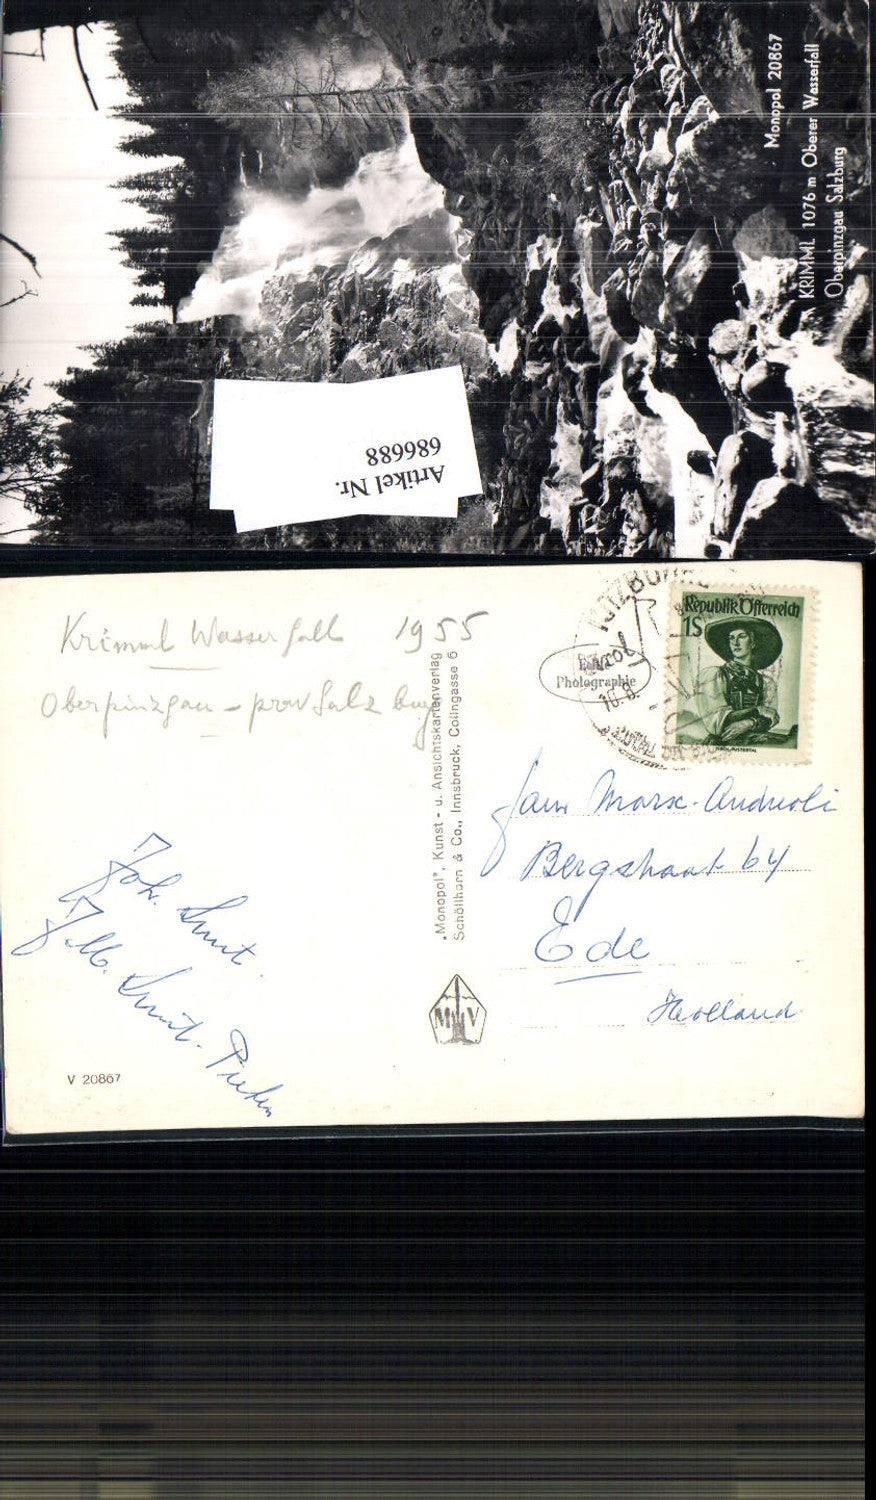 Monopol 20867
KRIMML 1076 m Oberer Wasserfall
Oberpinzgau Salzburg
Artikel Nr.
686688
Krimml Wasserfall 1955
Oberpinzgau - prov Salzburg
Echte
Photographie
10.8.
Republik Österreich
1S
„Monopol“, Kunst- u. Ansichtskartenverlag
Schöllhorn & Co., Innsbruck, Colingasse 6
Fam Marx-Andreoli
Bergstraat 64
Ede
Holland
Joh. Smit.
Smit-
M V
V 20867